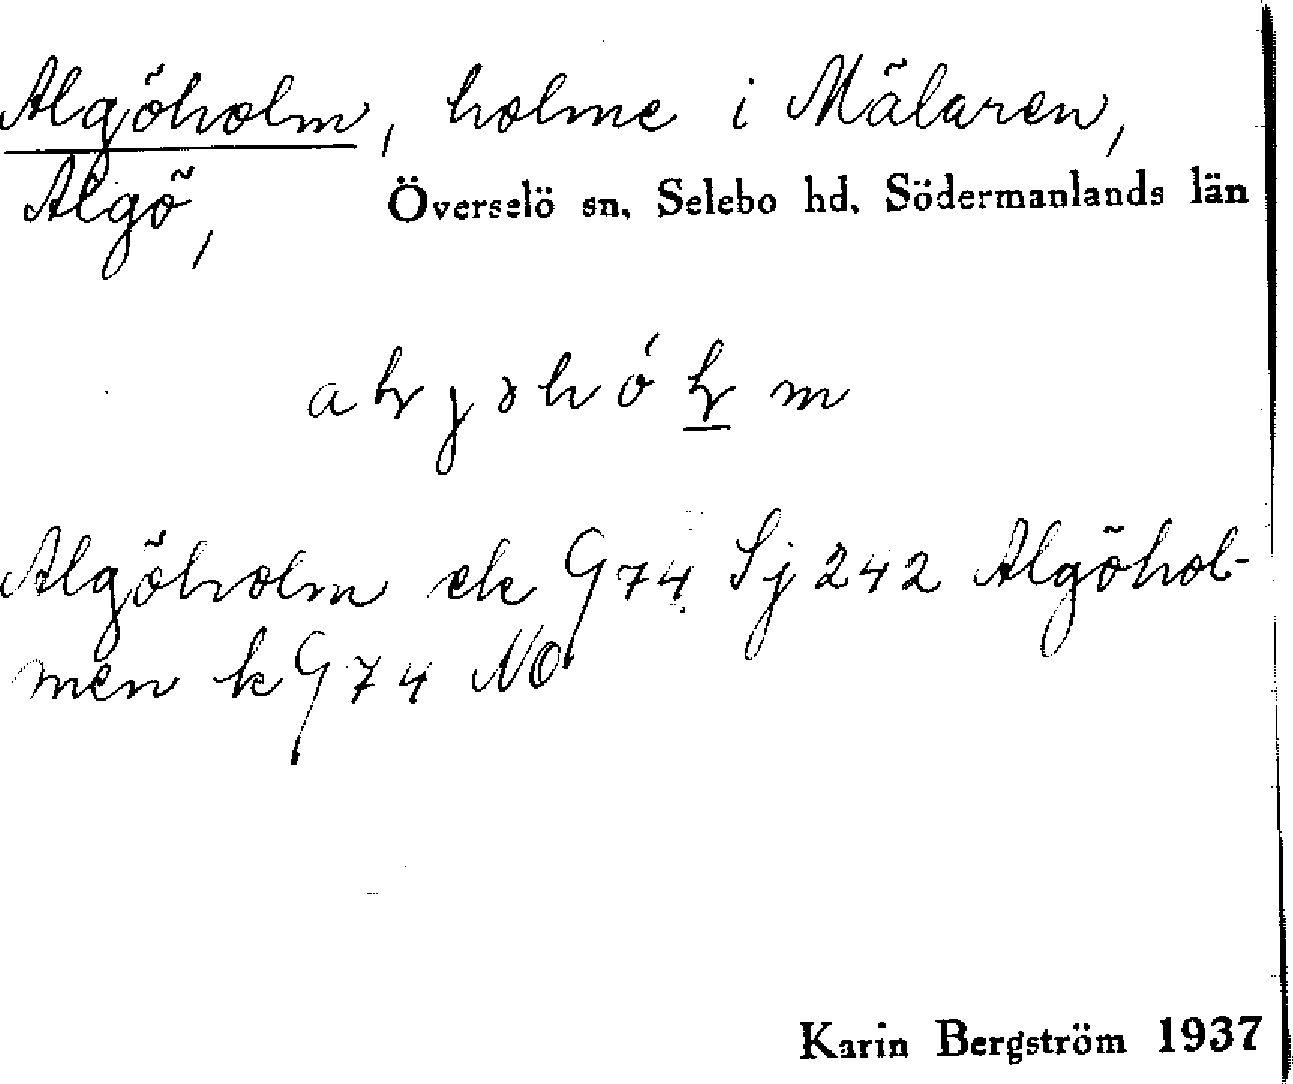 Algöholm, holme i Mälaren,
Algö, Överselö sn. Selebo hd. Södermanlands län
Algöholm ek G74 Sj 242 Algöhol-
men k G74 NO
Karin Bergström 1937